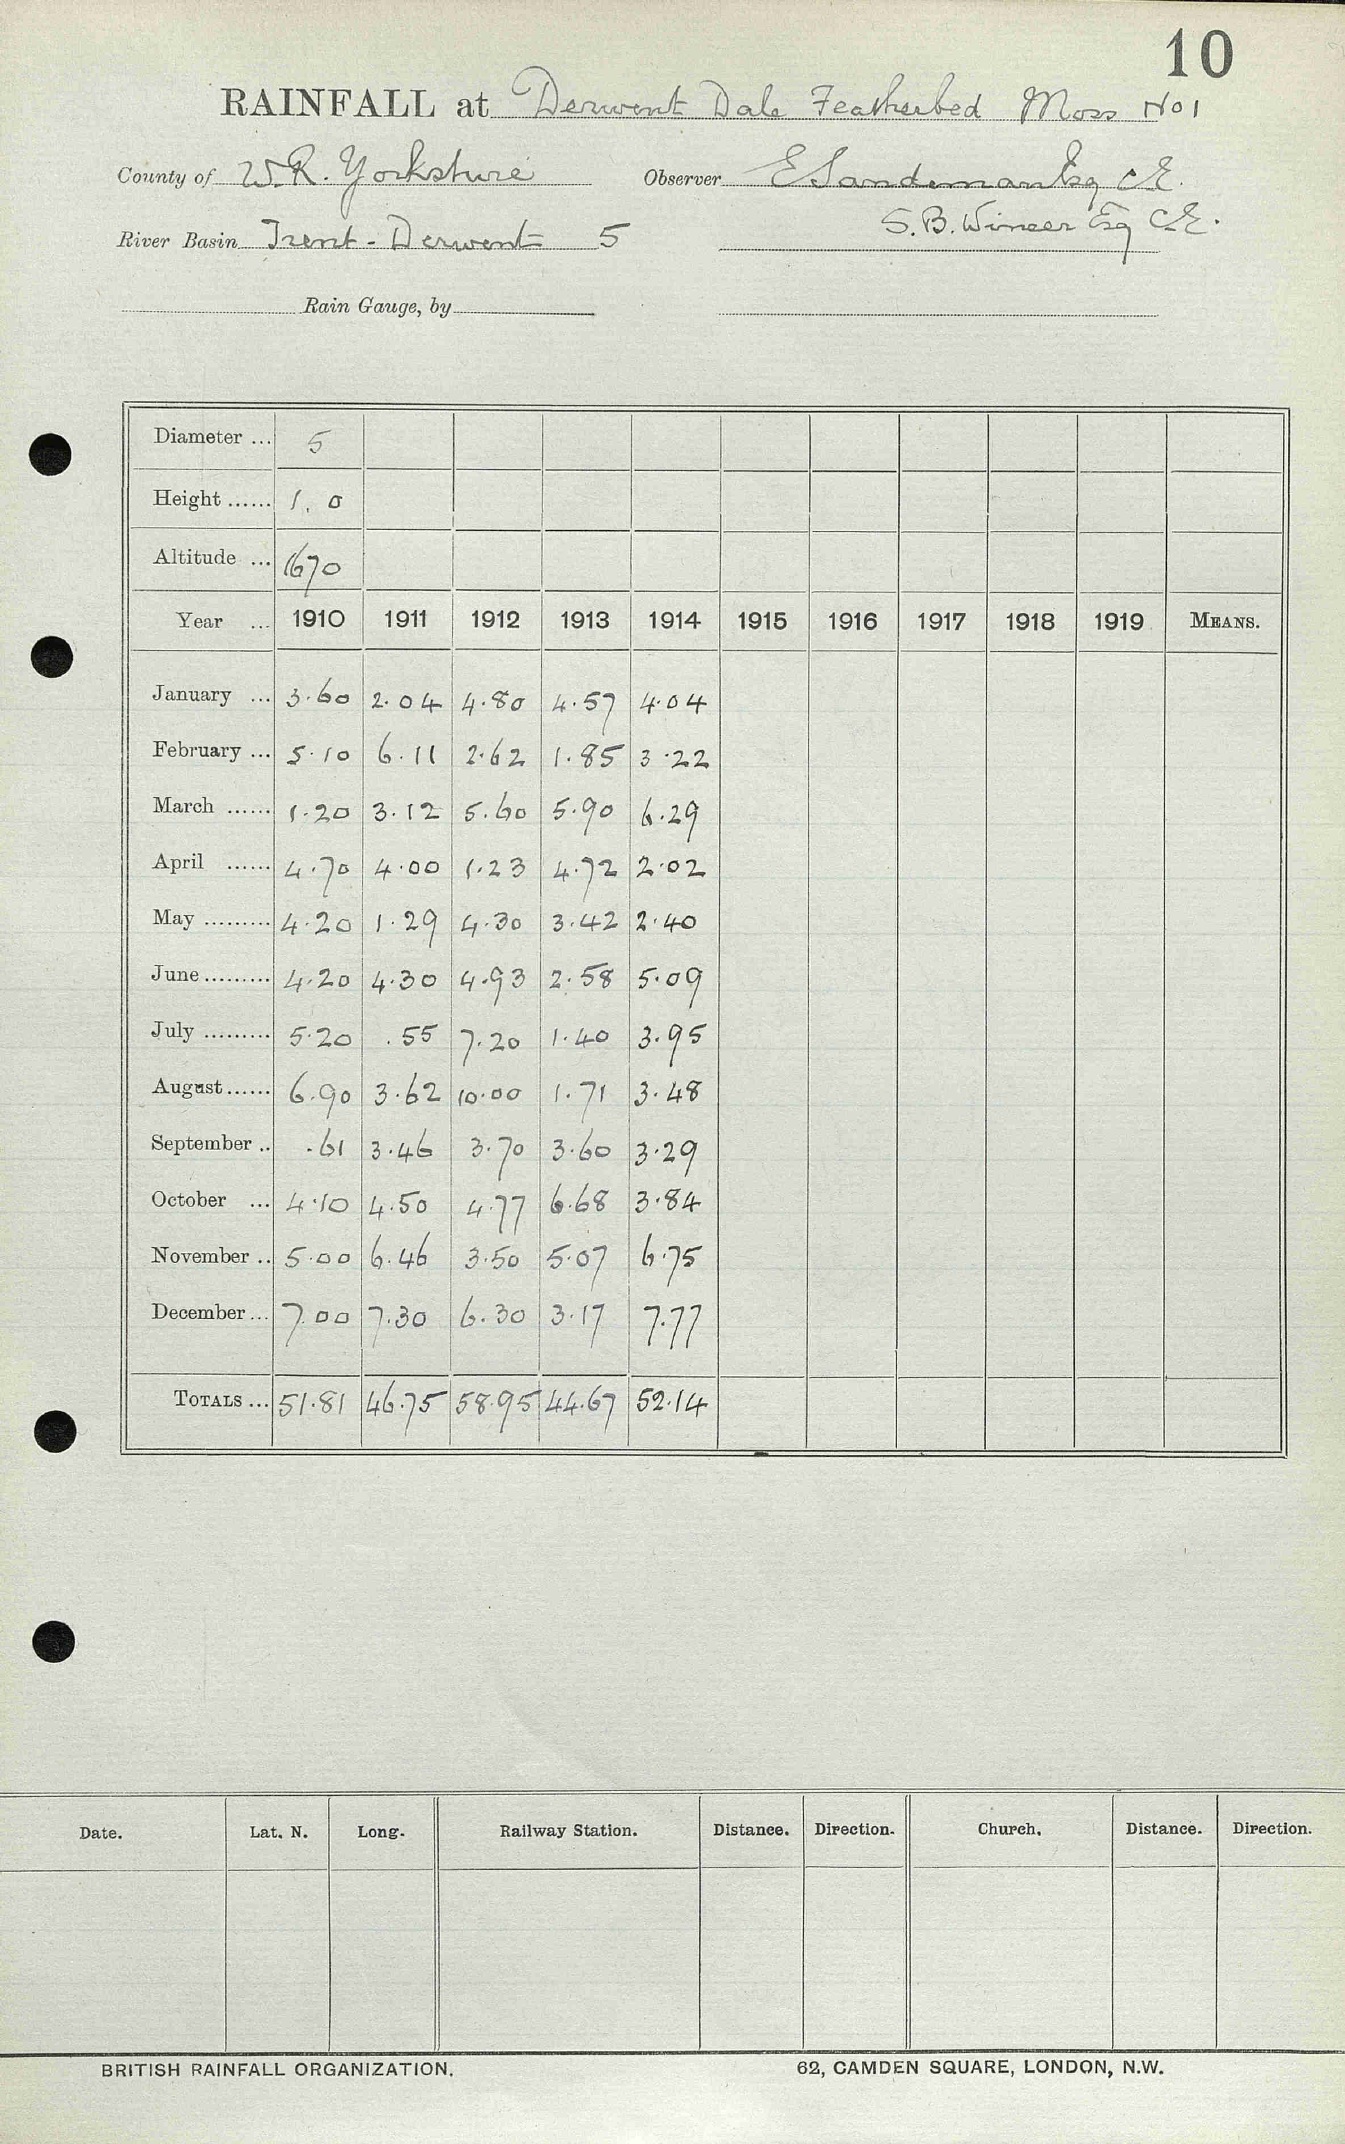 10
RAINFALL at Derwent Dale Featherbed Moss No 1
County of W.R. Yorkshire Observer E Sandeman Esq C.E.
S.B. Winser Esq C.E.
River Basin Trent - Derwent 5
Rain Gauge, by
Diameter ... 5
Height ...... 1. 0
Altitude ... 1670
Year ... 1910 1911 1912 1913 1914 1915 1916 1917 1918 1919 MEANS.
January ... 3.60 2.04 4.80 4.57 4.04
February ... 5.10 6.11 2.62 1.85 3.22
March ...... 1.20 3.12 5.60 5.90 6.29
April ...... 4.70 4.00 1.23 4.72 2.02
May ......... 4.20 1.29 4.30 3.42 2.40
June ......... 4.20 4.30 4.93 2.58 5.09
July ......... 5.20 .55 7.20 1.40 3.95
August ...... 6.90 3.62 10.00 1.71 3.48
September .. .61 3.46 3.70 3.60 3.29
October ... 4.10 4.50 4.77 6.68 3.84
November .. 5.00 6.46 3.50 5.07 6.75
December ... 7.00 7.30 6.30 3.17 7.77
TOTALS ... 51.81 46.75 58.95 44.67 52.14
Date. Lat. N. Long. Railway Station. Distance. Direction. Church. Distance. Direction.
BRITISH RAINFALL ORGANIZATION. 62, CAMDEN SQUARE, LONDON, N.W.